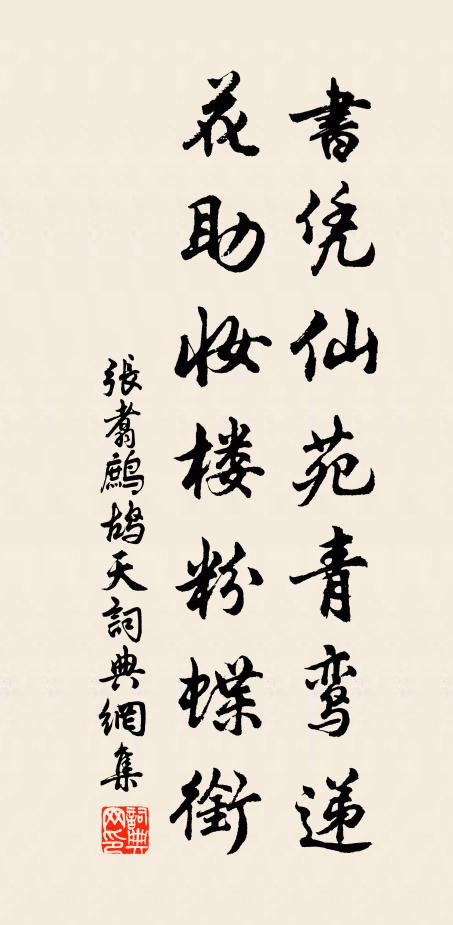 書凭仙苑青鸾递
花助妆楼粉蝶銜
張翥鷓鴣天詞典網集
詞典网印